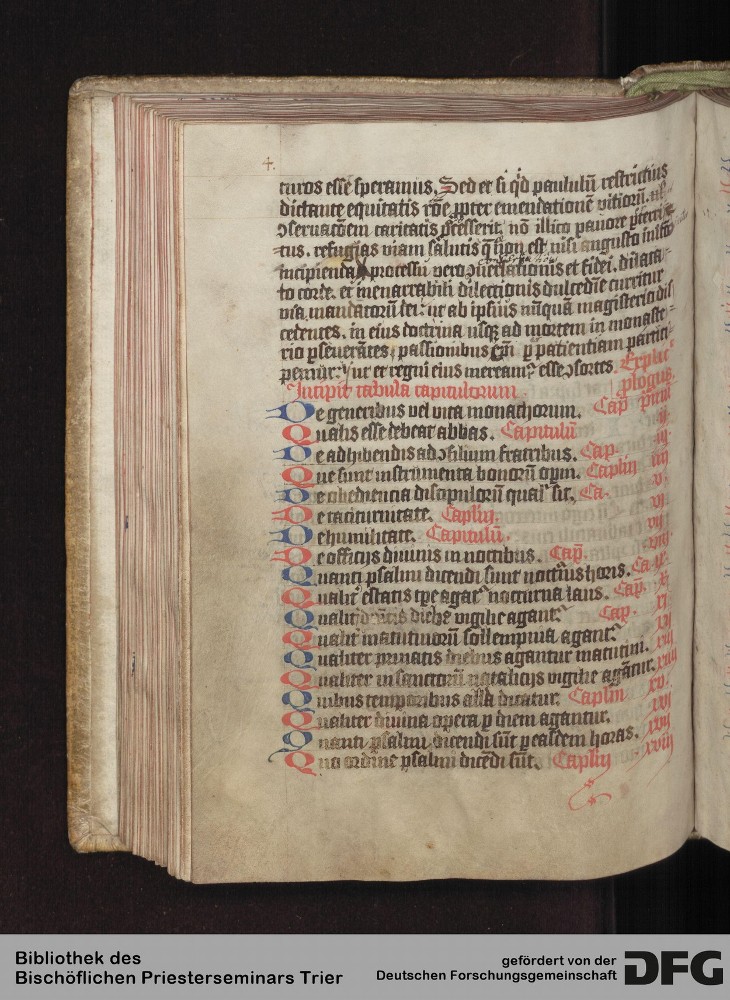 4.
turos esse speramus. Sed et si qd paululū restrictius
dictante equitatis rōe ꝓpter emendationē vitiorū. vl
ɔseruacōem caritatis ꝓcesserit. nō illico pauore ꝑterri
tus. refugias viam salutis q̄ non est nisi angusto
incipienda processu vero ɔuersationis et fidei. dilata
to corde. et inenarrabili dilectionis dulcedīe curritur
via mandatorū dei: ut ab ipsius nūquā magisterio dis
cedentes. in eius doctrina usqȝ ad mortem in monaste
rio ꝑseuerātes. passionibus xp̄i ꝑ patientiam partici
pemur: ut et regni eius mereamr̄ esse ɔsortes. Explic
Incipit tabula capitulorum. plogus
De generibus vel vita monachorum. Cap̄ pm̄
Qualis esse debeat abbas. Capitulū ij
De adhibendis ad ɔsilium fratribus. Cap. iij
Que sunt instrumenta bonorū opm. Caplm iiij
De obediencia discipulorū qual sit. Ca. v
De taciturnitate. Caplm. vi
De humilitate. Capitulū. vij
De officijs diuinis in noctibus. Cap̄. viij
Quanti psalmi dicendi sunt nocturnis horis. Ca ix
Qualit estatis tpe agat nocturna laus. Cap̄. x
Qualit dnicis diebȝ vigilie agant Cap. xi
Qualit matutinorū sollempnia agant xij
Qualiter priuatis diebus agantur matutini. xiij
Qualiter in sanctorū natalicijs vigilie agātur. xiiij
Quibus temporibus alla dicatur. Caplm xv.
Qualiter diuina opera ꝑ diem agantur. xvi
Quanti psalmi dicendi sūt ꝑ easdem horas. xvij
Quo ordine psalmi dicēdi sūt. Caplm xviij
Bibliothek des
Bischöflichen Priesterseminars Trier
gefördert von der
Deutschen Forschungsgemeinschaft
DFG